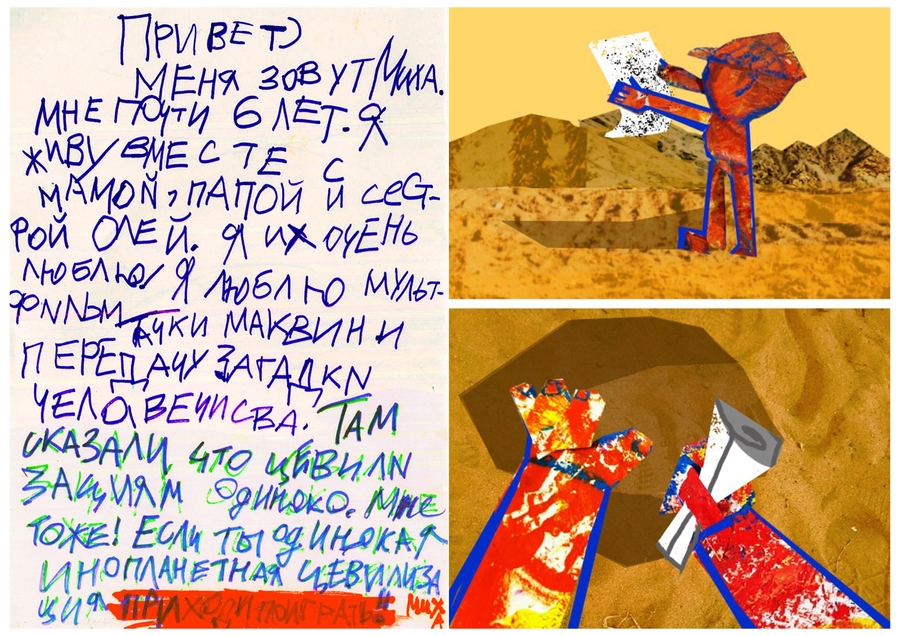 ПРИВЕТ)
МЕНЯ ЗОВУТ МИХА.
МНЕ ПОЧТИ 6 ЛЕТ. Я
ЖИВУ ВМЕСТЕ С
МАМОЙ, ПАПОЙ И СЕСТ-
РОЙ ОЛЕЙ. Я ИХ ОЧЕНЬ
ЛЮБЛЮ Я ЛЮБЛЮ МУЛЬТ-
ФИЛЬМ ТАЧКИ МАКВИН И
ПЕРЕДАЧУ ЗАГАДКИ
ЧЕЛОВЕЧИСВА. ТАМ
СКАЗАЛИ, ЧТО ЦЕВИЛИ
ЗАЦИЯМ ОДИНОКО. МНЕ
ТОЖЕ! ЕСЛИ ТЫ ОДИНОКАЯ
ИНОПЛАНЕТНАЯ ЦЕВИЛИЗА
ЦИЯ ПРИХОДИ ПОИГРАТЬ!! МИХА